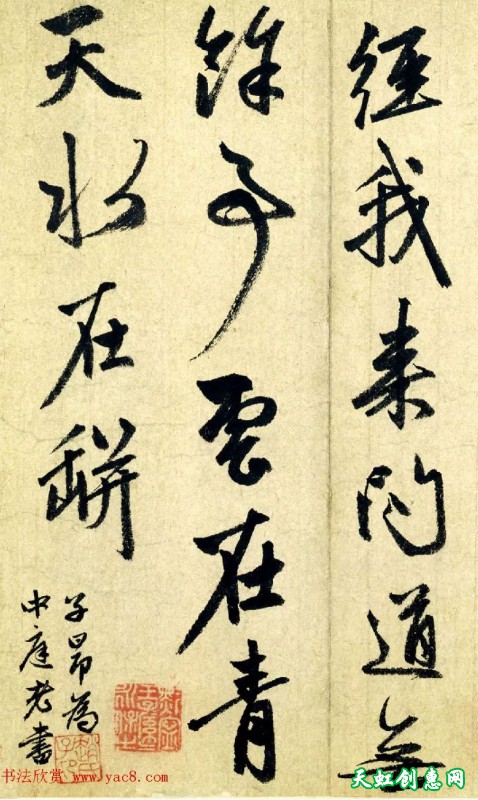 經我来問道無
餘事雲在青
天水在缾
子昂為
中庭老書
书法欣赏 www.yac8.com
天虹创意网